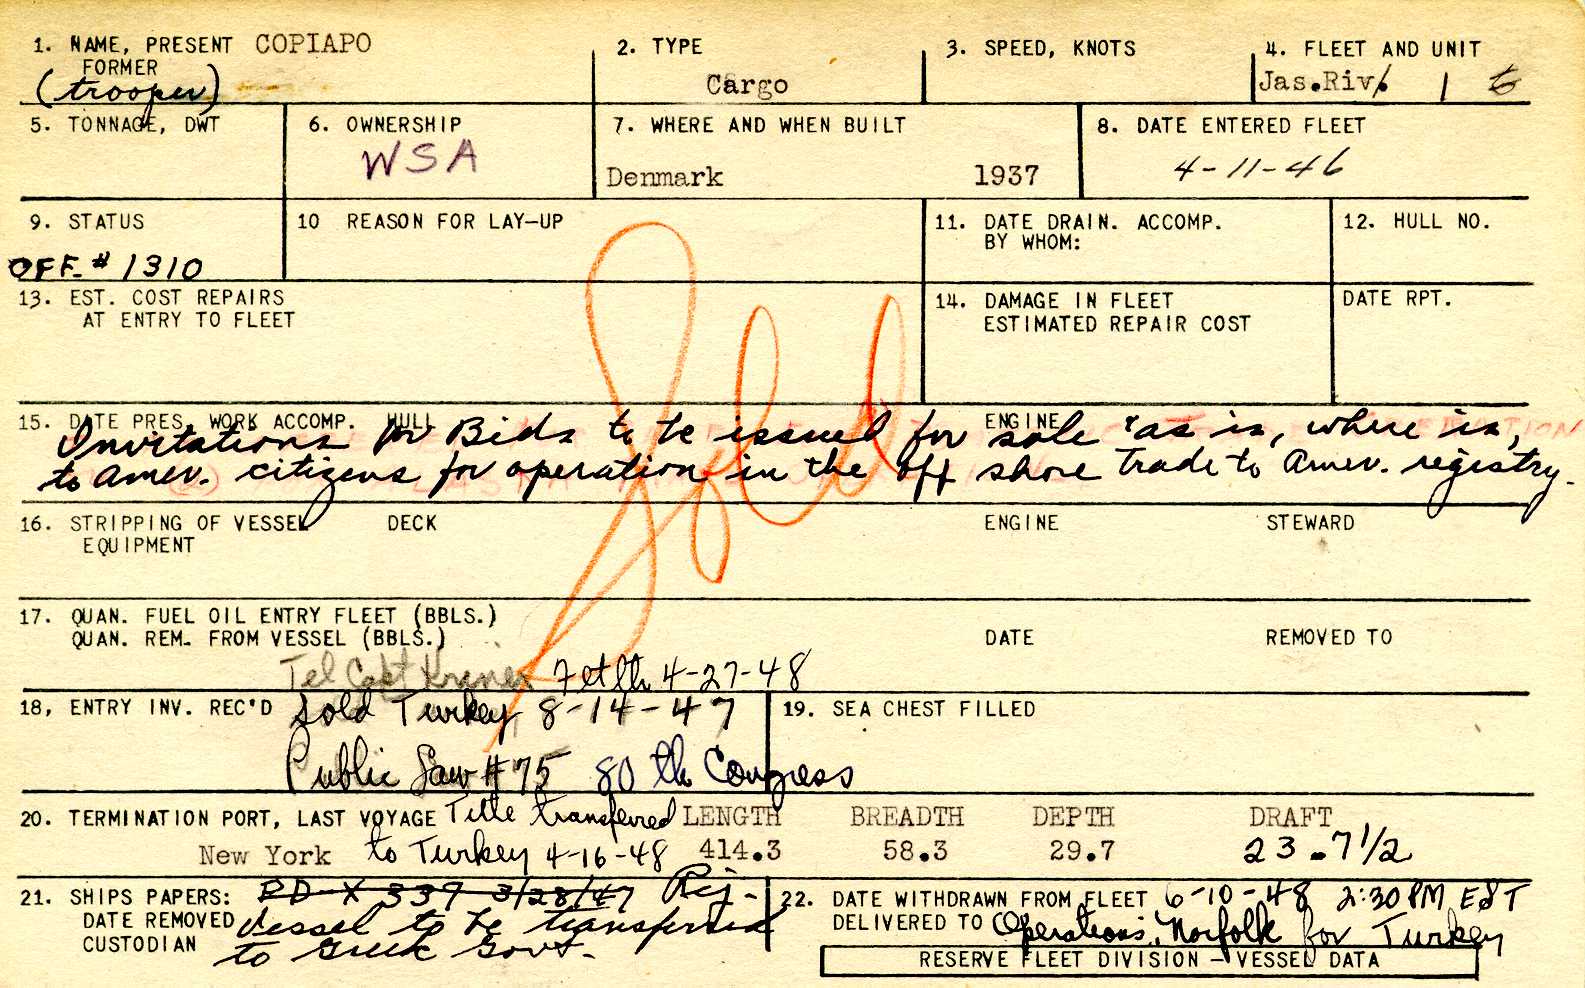 1. NAME, PRESENT COPIAPO
FORMER
(trooper)
2. TYPE
Cargo
3. SPEED, KNOTS
4. FLEET AND UNIT
Jas.Riv. 1 6
5. TONNAGE, DWT
6. OWNERSHIP
WSA
7. WHERE AND WHEN BUILT
Denmark 1937
8. DATE ENTERED FLEET
4-11-46
9. STATUS
OFF. # 1310
10 REASON FOR LAY-UP
11. DATE DRAIN. ACCOMP.
BY WHOM:
12. HULL NO.
13. EST. COST REPAIRS
AT ENTRY TO FLEET
14. DAMAGE IN FLEET
ESTIMATED REPAIR COST
DATE RPT.
Sold
15. DATE PRES. WORK ACCOMP. HULL ENGINE
Invitations for Bids to be issued for sale "as is, where is,
to Amer. citizens for operation in the off shore trade to Amer. registry.
16. STRIPPING OF VESSEL DECK ENGINE STEWARD
EQUIPMENT
17. QUAN. FUEL OIL ENTRY FLEET (BBLS.)
QUAN. REM. FROM VESSEL (BBLS.) DATE REMOVED TO
Tel Capt 4-27-48
18, ENTRY INV. REC'D Sold Turkey 8-14-47
Public Law # 75 80th Congress
19. SEA CHEST FILLED
20. TERMINATION PORT, LAST VOYAGE Title transferred
New York to Turkey 4-16-48
LENGTH BREADTH DEPTH DRAFT
414.3 58.3 29.7 23-7 1/2
21. SHIPS PAPERS: PD-X 337 3/28/47 Rej.
DATE REMOVED Vessel to be transferred
CUSTODIAN to Greek Govt.
22. DATE WITHDRAWN FROM FLEET 6-10-48 2:30 PM EST
DELIVERED TO Operations, Norfolk for Turkey
RESERVE FLEET DIVISION - VESSEL DATA